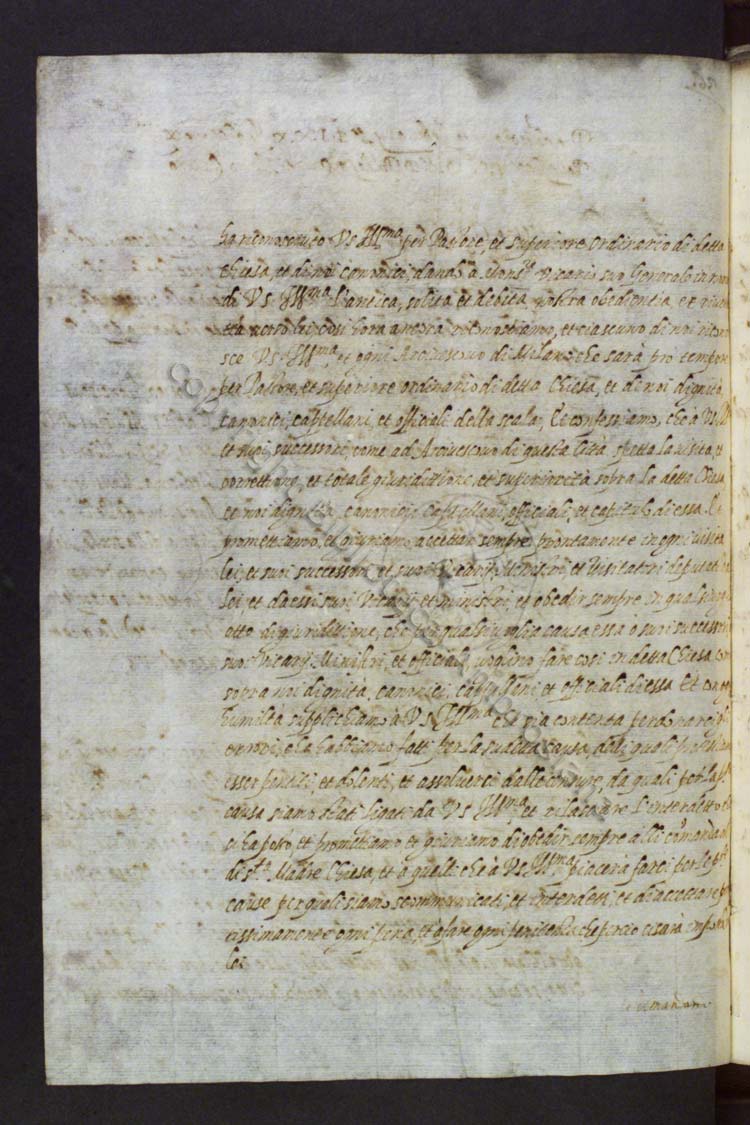 ha riconosciuto V.S. Ill.ma per Pastore, et superiore ordinario di detta
chiesa, et di noi canonici, dando à Mons.re Vicario suo Generale in nome
di V.S. Ill.ma l'antica, solita et debita nostra obedientia et
verso lei, così hora ancora riconosciamo, et ciascuno di noi ricono
sce V.S. Ill.ma, et ogni Arcivescovo di Milano che sarà pro tempore
per Pastore, et superiore ordinario di detta Chiesa, et di noi dignità,
canonici, capellani, et officiali della scala, Et confessiamo, che à V.S. Ill
et suoi successori, come ad Arcivescovo di questa Città spetta la visita, et
correttione, et totale giuridittione, et superiorità sopra la detta Chiesa
et noi dignità, canonici, capellani, officiali, et capitulo di essa. Et
promettiamo, et giuriamo accettar sempre prontamente in ogni visita
lei, et suoi successori et suoi Vicarij Ministri, et Visitatori deputati
lei, et da essi suoi Vicarij et ministri, et obedir sempre in qualsivog
atto di giuriditione, che per qualsivoglia causa essa o suoi successori
suoi Vicarij Ministri, et officiali voglino fare così in detta Chiesa com
sopra noi dignità, canonici, capellani et officiali di essa Et con
humiltà supplichiamo à V.S. Ill.ma sia contenta perdonarci gli
errori, che habbiamo fatti per la sudetta causa, deli quali
esser pentiti, et dolenti, et assolverci dalle censure, da quali per la
causa siamo stati ligati da V.S. Ill.ma et rilasciare l'interdetto
ci ha posto, et promettiamo et giuriamo di obedir sempre alli comandam
di s.ta Madre Chiesa, et à quelli che à V.S. Ill.ma piacerà farci per le
cause per quali siamo scommunicati, et interdetti, et di accettare
tissimamente ogni pena, et à fare ogni penitentia che perciò ci sarà
lei
copyright